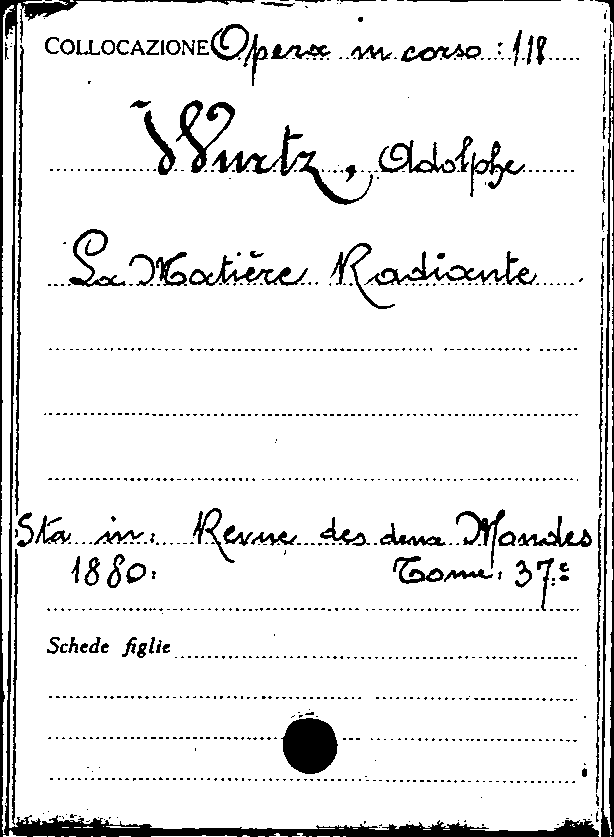 COLLOCAZIONE Opera in corso : 118
Wurtz, Adolphe
La Matière Radiante
Sta in: Revue des deux Mondes
1880. Tome: 37.e
Schede figlie